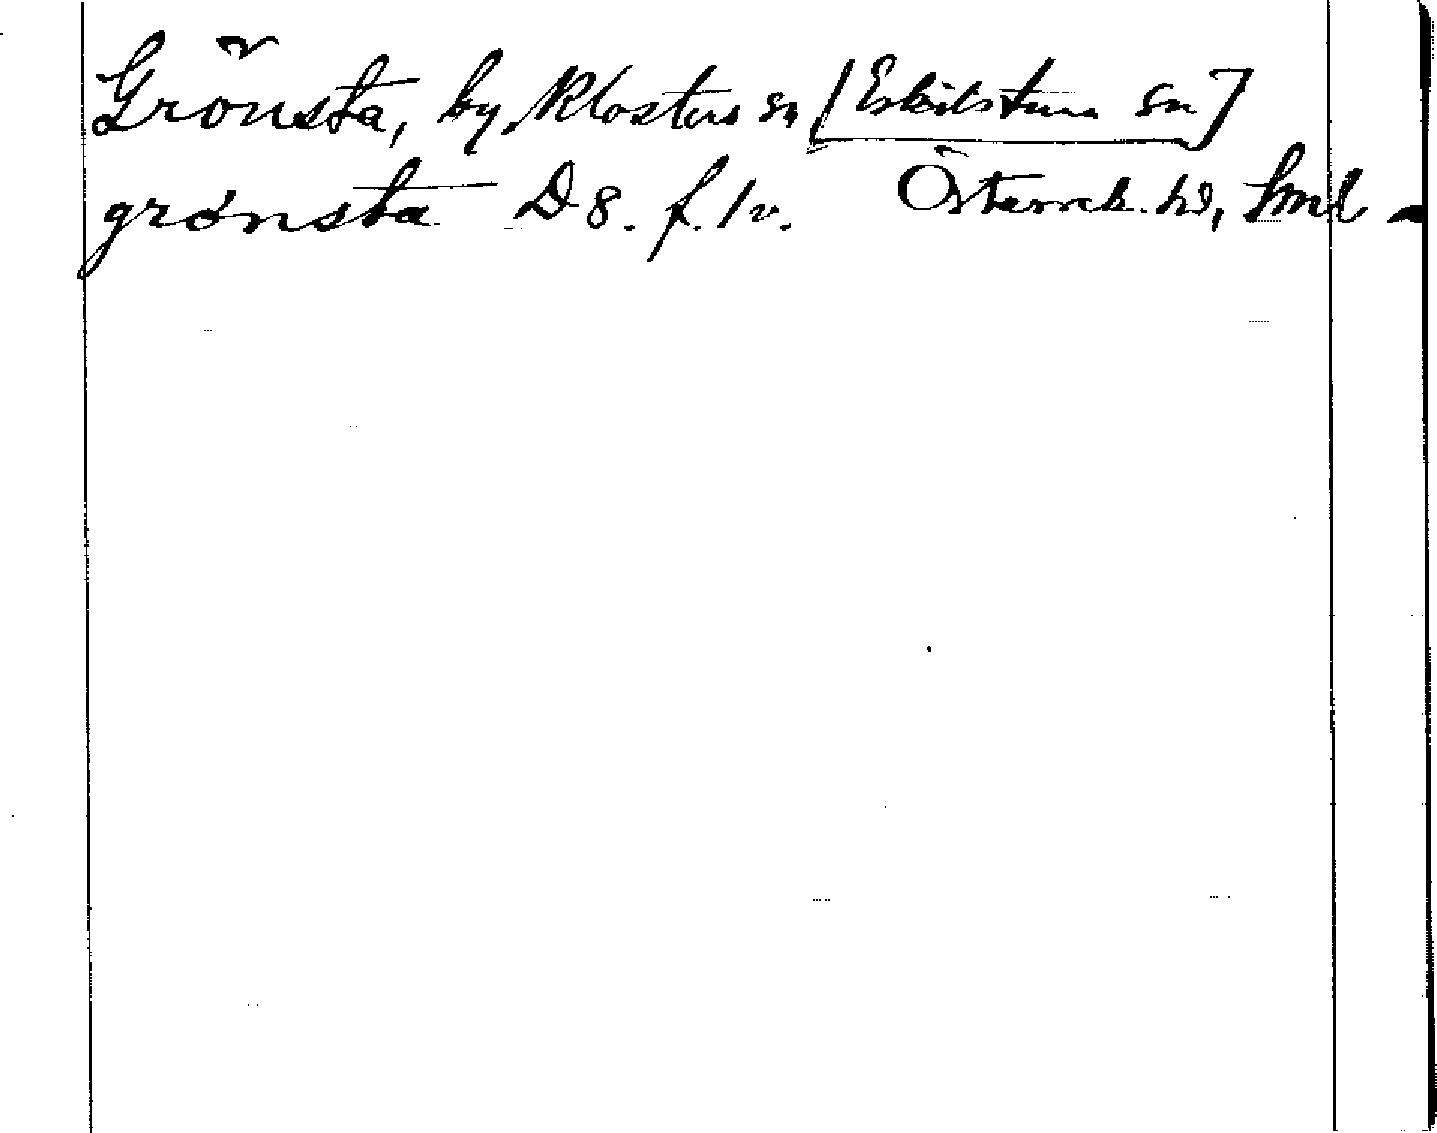 Grönsta, by, Klosters sn [Eskilstuna sn]
grønsta D 8. f. 1 v. Österrek. hd, Sml